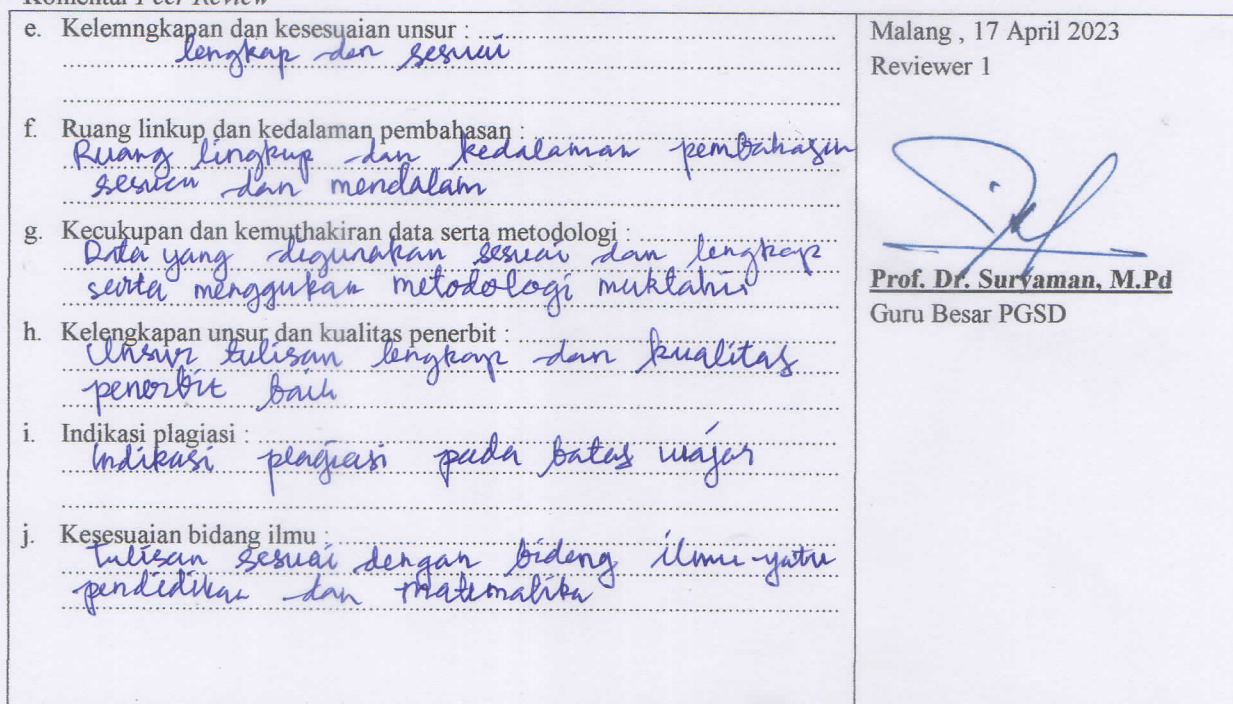 Komentar Peer Review
e. Kelemngkapan dan kesesuaian unsur : ........
lengkap dan sesuai
f. Ruang linkup dan kedalaman pembahasan : ........
Ruang lingkup dan kedalaman pembahasan
sesuai dan mendalam
g. Kecukupan dan kemuthakiran data serta metodologi : ........
Data yang digunakan sesuai dan lengkap
serta menggukan metodologi muktahir
h. Kelengkapan unsur dan kualitas penerbit : ........
Unsur tulisan lengkap dan kualitas
penerbit baik
i. Indikasi plagiasi : ........
Indikasi plagiasi pada batas wajar
j. Kesesuaian bidang ilmu : ........
Tulisan sesuai dengan bidang ilmu yaitu
pendidikan dan matematika
Malang , 17 April 2023
Reviewer 1
Prof. Dr. Suryaman, M.Pd
Guru Besar PGSD